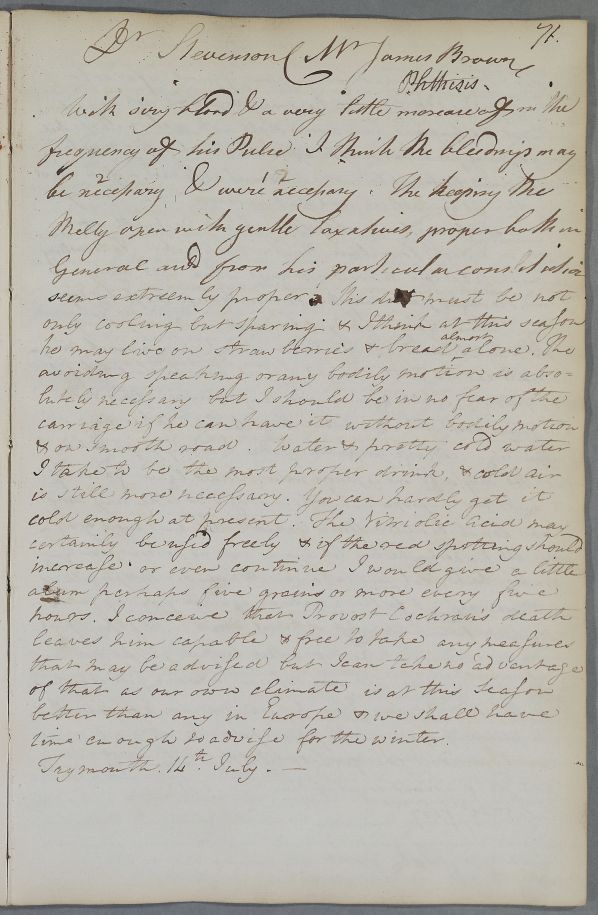 71.
Dr Stevenson (Mr James Brown
Phthisis.
With sizy blood & a very little increase of in the
frequency of his Pulse I think the bleedings may
be necessary & were necessary. The keeping the
Belly open with gentle laxatives, proper both in
General and from his particular constitution
seems extreemly proper. His diet must be not
only cooling but sparing & I think at this season
he may live on strawberries & bread almost alone. The
avoiding speaking or any bodily motion is abso-
lutely necessary but I should be in no fear of the
carriage if he can have it without bodily motion
& on smooth road. Water & pretty cold water
I take to be the most proper drink, & cold air
is still more necessary. You can hardly get it
cold enough at present. The Vitriolic Acid may
certainly be used freely & if the red spotting should
increase or even continue I would give a little
alum perhaps five grains or more every five
hours. I conceive that Provost Cochran's death
leaves him capable & free to take any measures
that may be advised but I can take no advantage
of that as our own climate is at this season
better than any in Europe & we shall have
time enough to advise for the winter.
Inymouth. 14th July. —